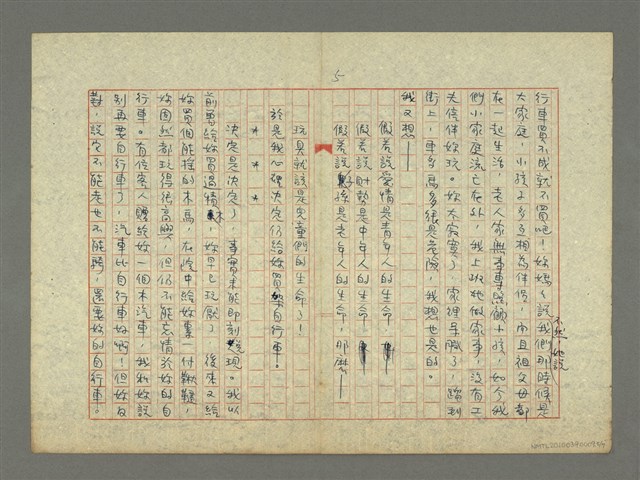 5
行車買不成就不買吧!妳媽々說我們那時候是
大家庭,小孩子多互相為伴侶,而且祖父母都
在一起生活,老人家無事專照顧小孩,如今我
們小家庭流亡在外,我上班她做家事,沒有工
夫陪伴妳玩。妳太寂寞了,家裡呆膩了,蹓到
街上,車多馬多很是危險,我想也是的。
不然,她說
我又想——
假若說愛情是青年人的生命,
假若說財勢是中年人的生命,
假若說兒孫是老年人的生命,那麼——
玩具就該是兒童們的生命了!
於是我心裡決定仍給妳買架自行車。
* * *
決定是決定了,事實未能即刻兌現。我以
前曾給妳買過積木,妳早已玩厭了,後來又給
妳買個能搖的木馬,在院中給妳架一付鞦韆,
妳固然都玩得很高興,但仍不能忘情於妳的自
行車。有位客人贈給妳一個木汽車,我和妳說
別再要自行車了,汽車比自行車好啊!但妳反
對,說它不能走也不能騎,還要妳的自行車。